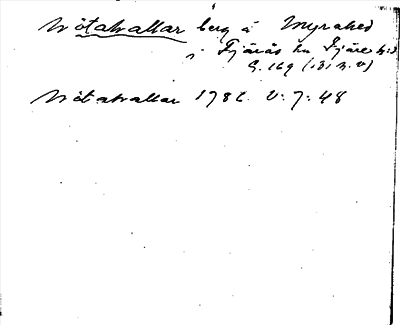 Nötavallar berg å Myrahed
i Fjärås sn Fjäre hd
G. 169 (131 n. v)
Nötavallar 1782. V: 7: 48